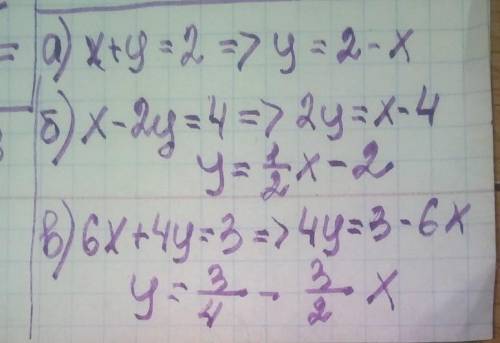 а) x+y=2 => y=2-x
б) x-2y=4 => 2y=x-4
y=1/2x-2
в) 6x+4y=3 => 4y=3-6x
y=3/4-3/2x